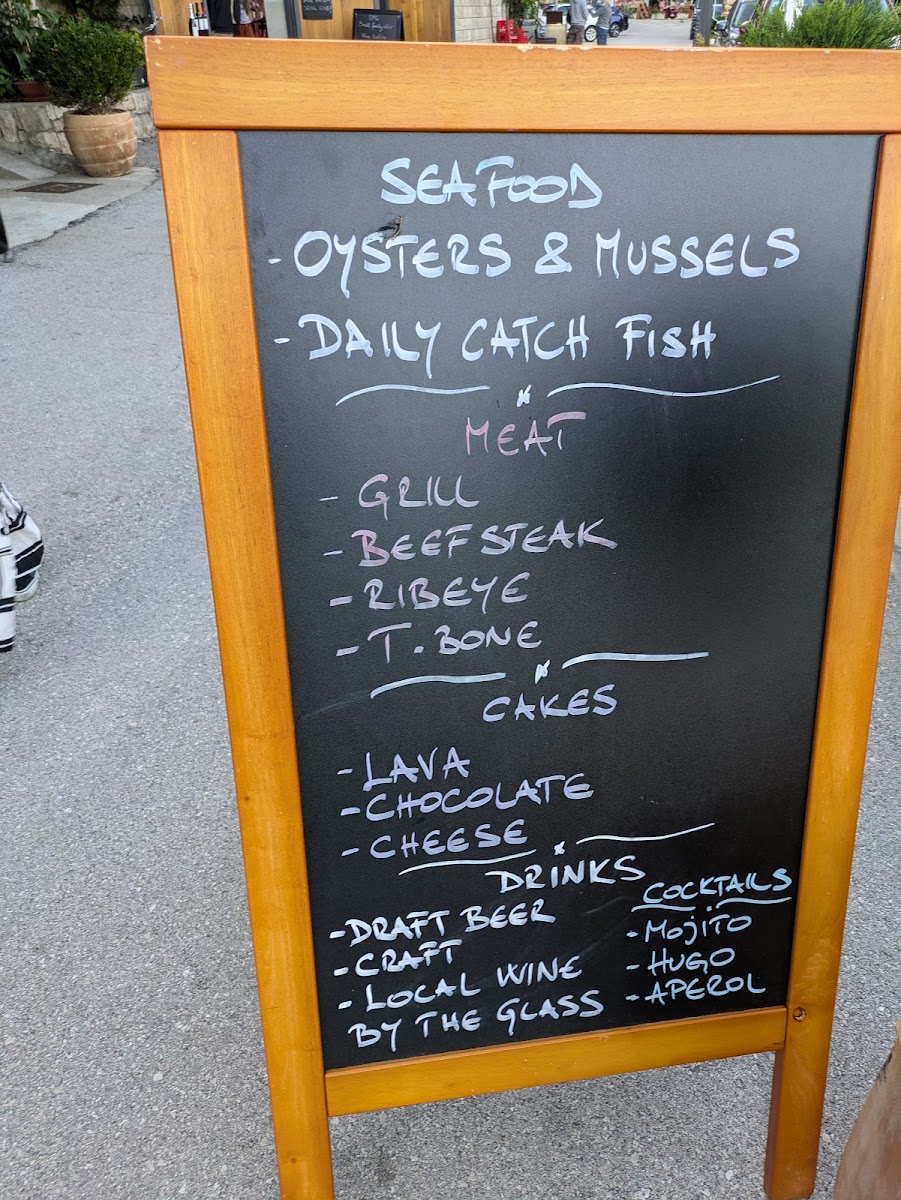 SEAFOOD
- OYSTERS & MUSSELS
- DAILY CATCH FISH
MEAT
- GRILL
- BEEFSTEAK
- RIBEYE
- T.BONE
CAKES
- LAVA
- CHOCOLATE
- CHEESE
DRINKS
- DRAFT BEER
- CRAFT
- LOCAL WINE
BY THE GLASS
COCKTAILS
- MOJITO
- HUGO
- APEROL